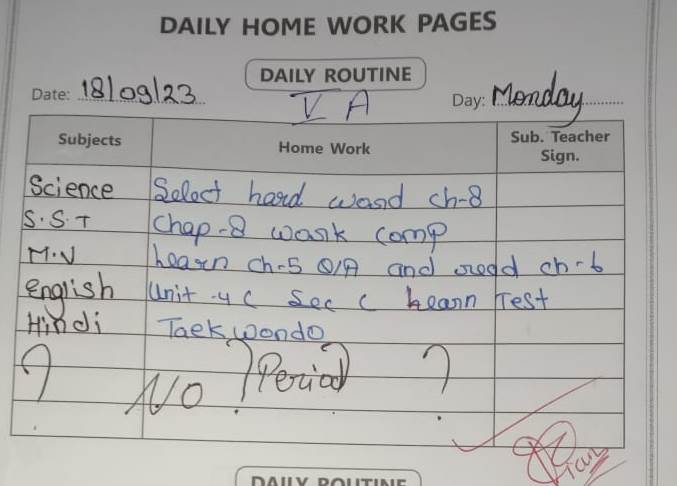 DAILY HOME WORK PAGES
DAILY ROUTINE
Date: 18/09/23 V A Day: Monday
Subjects Home Work Sub. Teacher Sign.
Science Select hard word ch-8
S.S.T Chap-8 work comp
M.V learn ch-5 Q/A and read ch-6
English Unit-4 C Sec C learn Test
Hindi Taekwondo
? No ? Period ?
DAILY ROUTINE